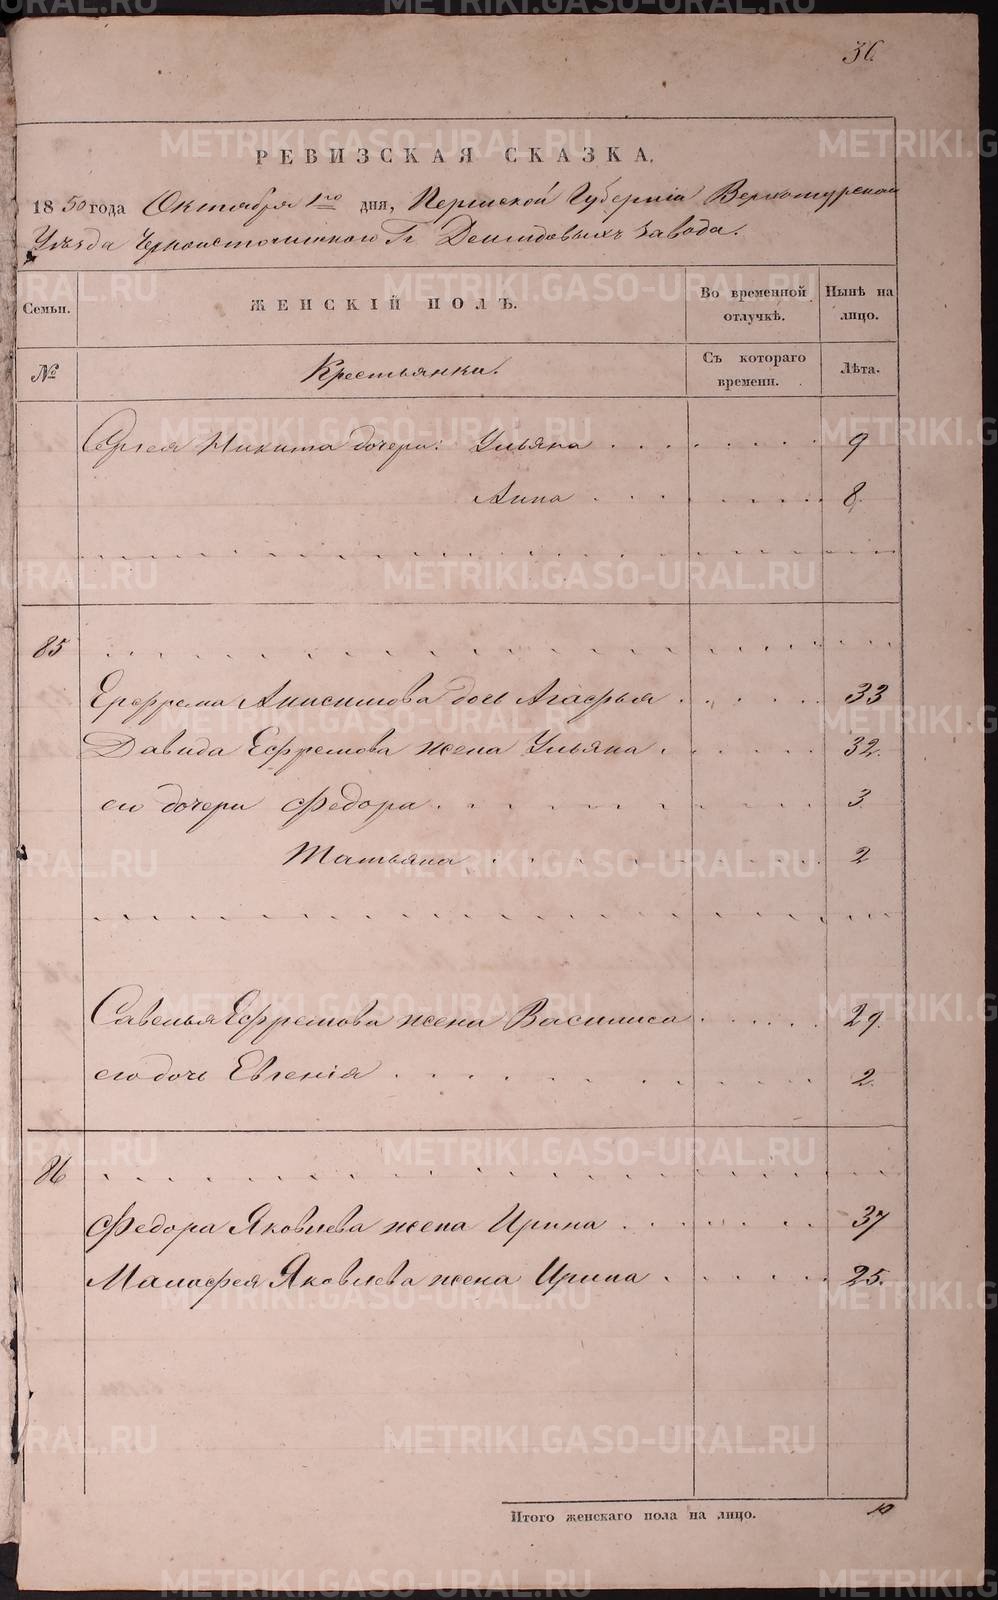 36
РЕВИЗСКАЯ СКАЗКА.
1850 года Октября 1го дня, Пермской Губерніи Верхотурскаго
Уѣзда Черноисточинскаго Гг Демидовыхъ завода.
Семьи. ЖЕНСКІЙ ПОЛЪ. Во временной отлучкѣ. Нынѣ на лицо.
№ Крестьянки. Съ котораго времени. Лѣта.
Сергея Никитина дочери: Ульяна 9
Анна 8.
85
Ефрема Анисимова дочь Агафья 33
Давида Ефремова жена Ульяна 32.
его дочери Федора 3
Татьяна 2
Савелья Ефремова жена Василиса 29.
его дочь Евгенія 2.
86
Федора Яковлева жена Ирина 37
Малафея Яковлева жена Ирина 25.
Итого женскаго пола на лицо. 10
METRIKI.GASO-URAL.RU